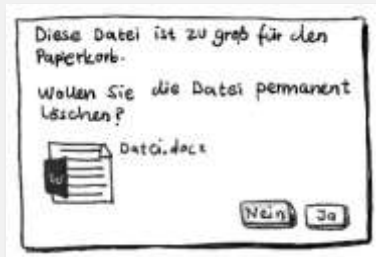 Diese Datei ist zu groß für den
Papierkorb.
Wollen Sie die Datei permanent
Löschen?
Datei.docx
W
Nein Ja